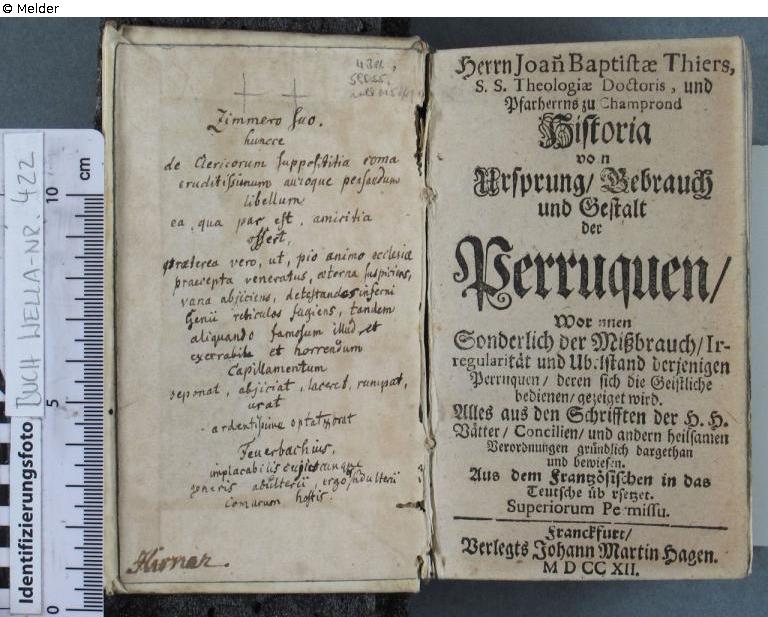 © Melder
cm
10
5
0
Identifizierungsfoto
BUCH WELLA-NR. 422
Zimmero suo.
huncce
de Clericorum supposititia coma
eruditissimum auroque pensandum
libellum
ea, qua par est, amicitia
offert,
præterea vero, ut, pio animo ecclesiæ
præcepta veneratus, æterna suspiciens,
vana abjiciens, detestandos inferni
Genii reticulos fugiens, tandem
aliquando famosum illud et
execrabile et horrendum
Capillamentum
seponat, abjiciat, laceret, rumpat,
urat
ardentissime optat, orat
Feuerbachius,
implacabilis cujuscunque
generis adulterii, ergo &
comarum hostis.
Herrn Joan̄ Baptistæ Thiers,
S. S. Theologiæ Doctoris, und
Pfarherrns zu Champrond
Historia
von
Ursprung/ Gebrauch
und Gestalt
der
Perruquen/
Worinnen
Sonderlich der Mißbrauch/ Ir-
regularität und Ubelstand derjenigen
Perruquen/ deren sich die Geistliche
bedienen/ gezeiget wird.
Alles aus den Schrifften der H. H.
Vätter/ Concilien/ und andern heilsamen
Verordnungen gründlich dargethan
und bewiesen.
Aus dem Frantzösischen in das
Teutsche übersetzet.
Superiorum Permissu.
Franckfurt/
Verlegts Johann Martin Hagen.
M D CC XII.